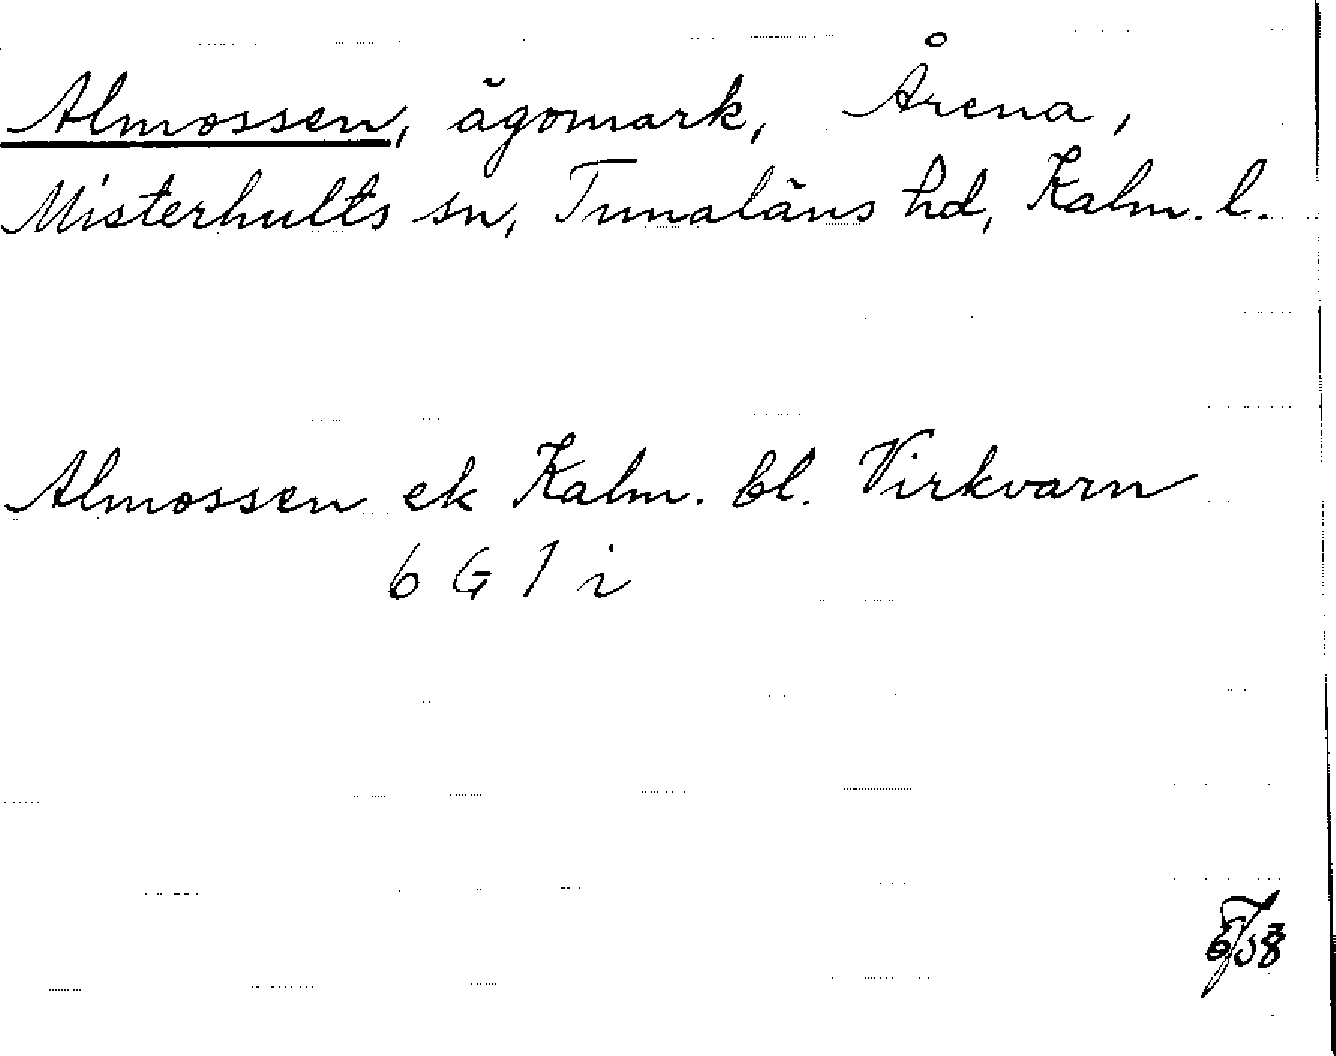 Almossen, ägomark, Årena,
Misterhults sn, Tunaläns hd, Kalm. l.
Almossen ek Kalm. bl. Virkvarn
6 G 1 i